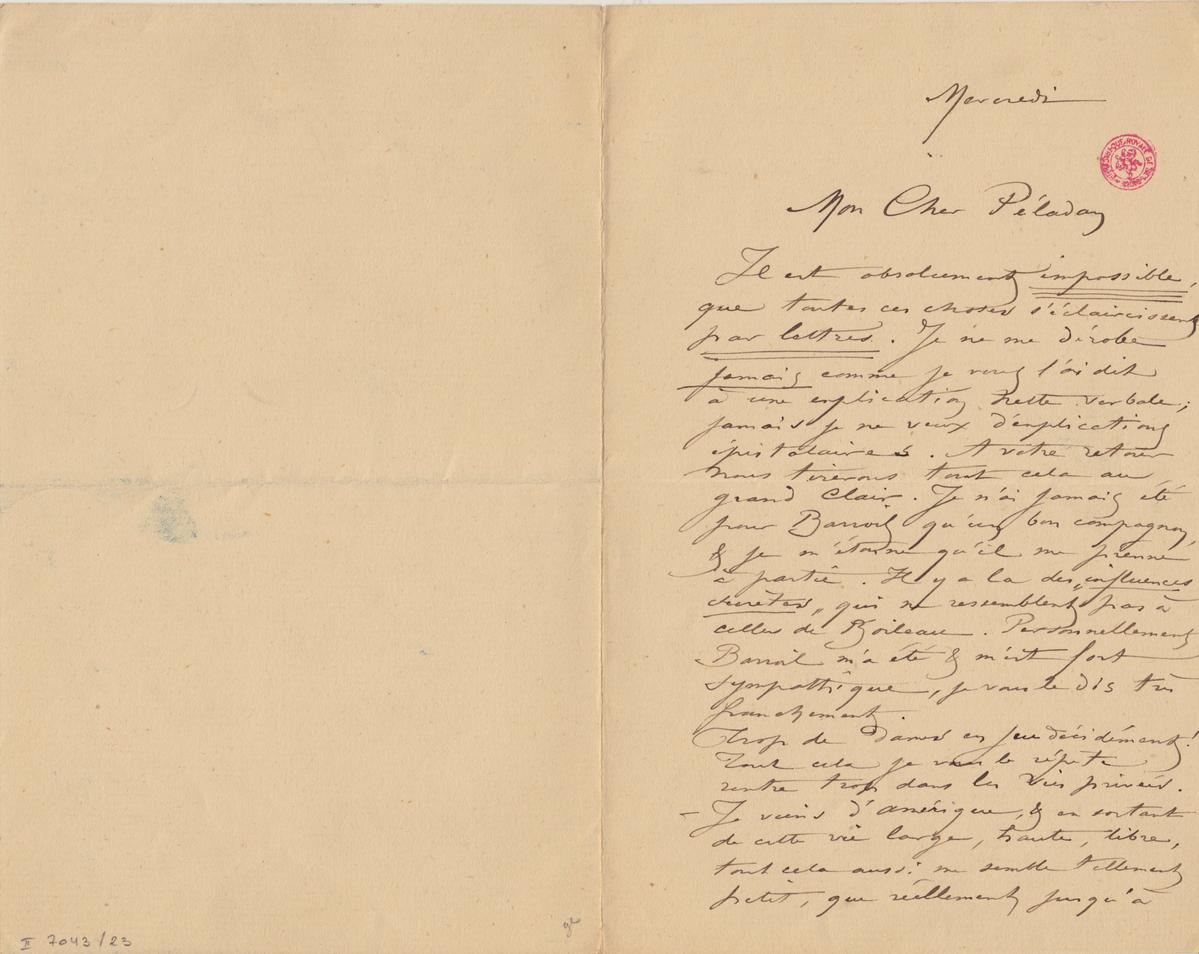 Mercredi
Mon Cher Péladan
Il est absolument impossible,
que toutes ces choses s'éclaircissent
par lettres. Je ne me dérobe
jamais comme je vous l'ai dit
à une explication nette verbale;
jamais je ne veux d'explications
épistolaires. A votre retour
nous tirerons tout cela au
grand Clair. Je n'ai jamais été
pour Barroil qu'un bon compagnon,
& je m'étonne qu'il me prenne
à partie. Il y a la des „influences
secrètes„ qui ne ressemblent pas à
celles de Boileau. Personnellement
Barroil m'a été & m'est fort
sympathique, je vous le dis très
franchement.
Trop de Dames en jeu décidément!
Tout cela je vous le répète
rentre trop dans les Vies privées.
- Je viens d'amérique, & en sortant
de cette vie large, haute, libre,
tout cela aussi me semble tellement
petit, que réellement jusqu'à
II 7043/23